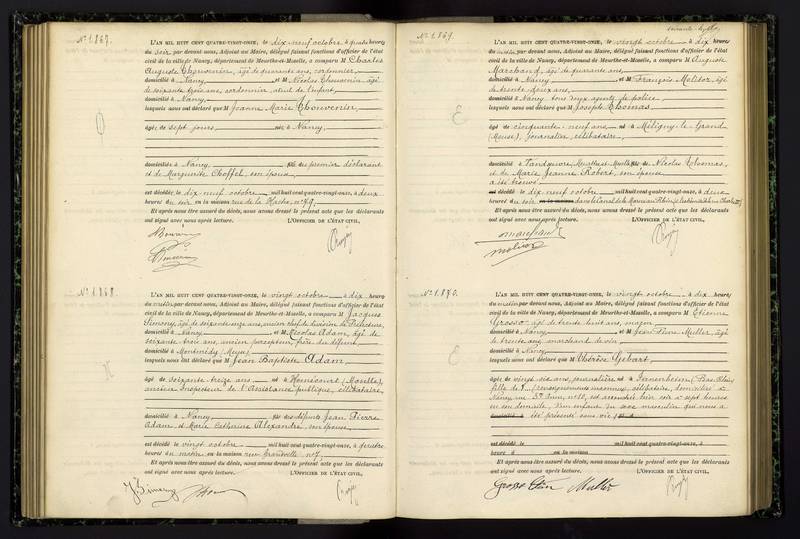 N° 1.867.
L'AN MIL HUIT CENT QUATRE-VINGT-ONZE, le dix-neuf octobre à quatre heures
du soir par devant nous, Adjoint au Maire, délégué faisant fonctions d'officier de l'état
civil de la ville de Nancy, département de Meurthe-et-Moselle, a comparu M Charles
Auguste Thouvenin, âgé de quarante ans, cordonnier,
domicilié à Nancy et M Nicolas Thouvenin, âgé
de soixante trois ans, cordonnier, aïeul de l'enfant,
domicilié à Nancy
lesquels nous ont déclaré que M Jeanne Marie Thouvenin,
âgée de sept jours, née à Nancy,
domicilié à Nancy, fille des premier déclarant
et de Marguerite Choffel, son épouse,
est décédée le dix-neuf octobre mil huit cent quatre-vingt-onze, à deux
heures du soir en la maison rue de la Hache, n° 79,
Et après nous être assuré du décès, nous avons dressé le présent acte que les déclarants
ont signé avec nous après lecture. L'OFFICIER DE L'ÉTAT CIVIL,
N° 1.868.
L'AN MIL HUIT CENT QUATRE-VINGT-ONZE, le vingt octobre à dix heures
du matin par devant nous, Adjoint au Maire, délégué faisant fonctions d'officier de l'état
civil de la ville de Nancy, département de Meurthe-et-Moselle, a comparu M Jacques
Simony, âgé de soixante onze ans, ancien chef de division de Préfecture,
domicilié à Nancy et M Nicolas Adam, âgé de
soixante trois ans, ancien percepteur, frère du défunt,
domicilié à Montmédy (Meuse)
lesquels nous ont déclaré que M Jean Baptiste Adam,
âgé de soixante treize ans, né à (Moselle),
ancien Inspecteur de l'Assistance publique, célibataire,
domicilié à Nancy, fils des défunts Jean Pierre
Adam et Marie Catherine Alexandre, son épouse,
est décédé le vingt octobre mil huit cent quatre-vingt-onze, à quatre
heures du matin en la maison rue Grandville n° 7,
Et après nous être assuré du décès, nous avons dressé le présent acte que les déclarants
ont signé avec nous après lecture. L'OFFICIER DE L'ÉTAT CIVIL,
N° 1.869.
L'AN MIL HUIT CENT QUATRE-VINGT-ONZE, le vingt octobre à dix heures
du matin par devant nous, Adjoint au Maire, délégué faisant fonctions d'officier de l'état
civil de la ville de Nancy, département de Meurthe-et-Moselle, a comparu M Auguste
Marchand, âgé de quarante ans,
domicilié à Nancy et M François Molitor, âgé
de trente deux ans,
domicilié à Nancy tous deux agents de police,
lesquels nous ont déclaré que M Joseph Thomas,
âgé de cinquante-neuf ans né à Méligny-le-Grand
(Meuse), journalier, célibataire,
domicilié à Vandœuvre, Meurthe et Moselle, fils de Nicolas Thomas,
et de Marie Jeanne Robert, son épouse,
a été trouvé
est décédé le dix-neuf octobre mil huit cent quatre-vingt-onze, à deux
heures du soir en la maison dans le Canal de la Marne au Rhin,
Et après nous être assuré du décès, nous avons dressé le présent acte que les déclarants
ont signé avec nous après lecture. L'OFFICIER DE L'ÉTAT CIVIL,
Marchand
Molitor
N° 1.870.
L'AN MIL HUIT CENT QUATRE-VINGT-ONZE, le vingt octobre à dix heures
du matin par devant nous, Adjoint au Maire, délégué faisant fonctions d'officier de l'état
civil de la ville de Nancy, département de Meurthe-et-Moselle, a comparu M Etienne
Grosse âgé de trente huit ans, maçon
domicilié à Nancy et M Jean Pierre Muller, âgé
de trente cinq ans, marchand de vin
domicilié à Nancy
lesquels nous ont déclaré que M Thérèse Gebart,
âgée de vingt six ans, journalière née à (Bas-Rhin)
fille de (renseignements inconnus), célibataire, domiciliée à
Nancy, rue St Jean, n° 10, est accouchée hier soir à sept heures
en son domicile, d'un enfant du sexe masculin qui nous a
domicilié à été présenté sans vie.
est décédé le mil huit cent quatre-vingt-onze, à
heures d en la maison
Et après nous être assuré du décès, nous avons dressé le présent acte que les déclarants
ont signé avec nous après lecture. L'OFFICIER DE L'ÉTAT CIVIL,
Muller